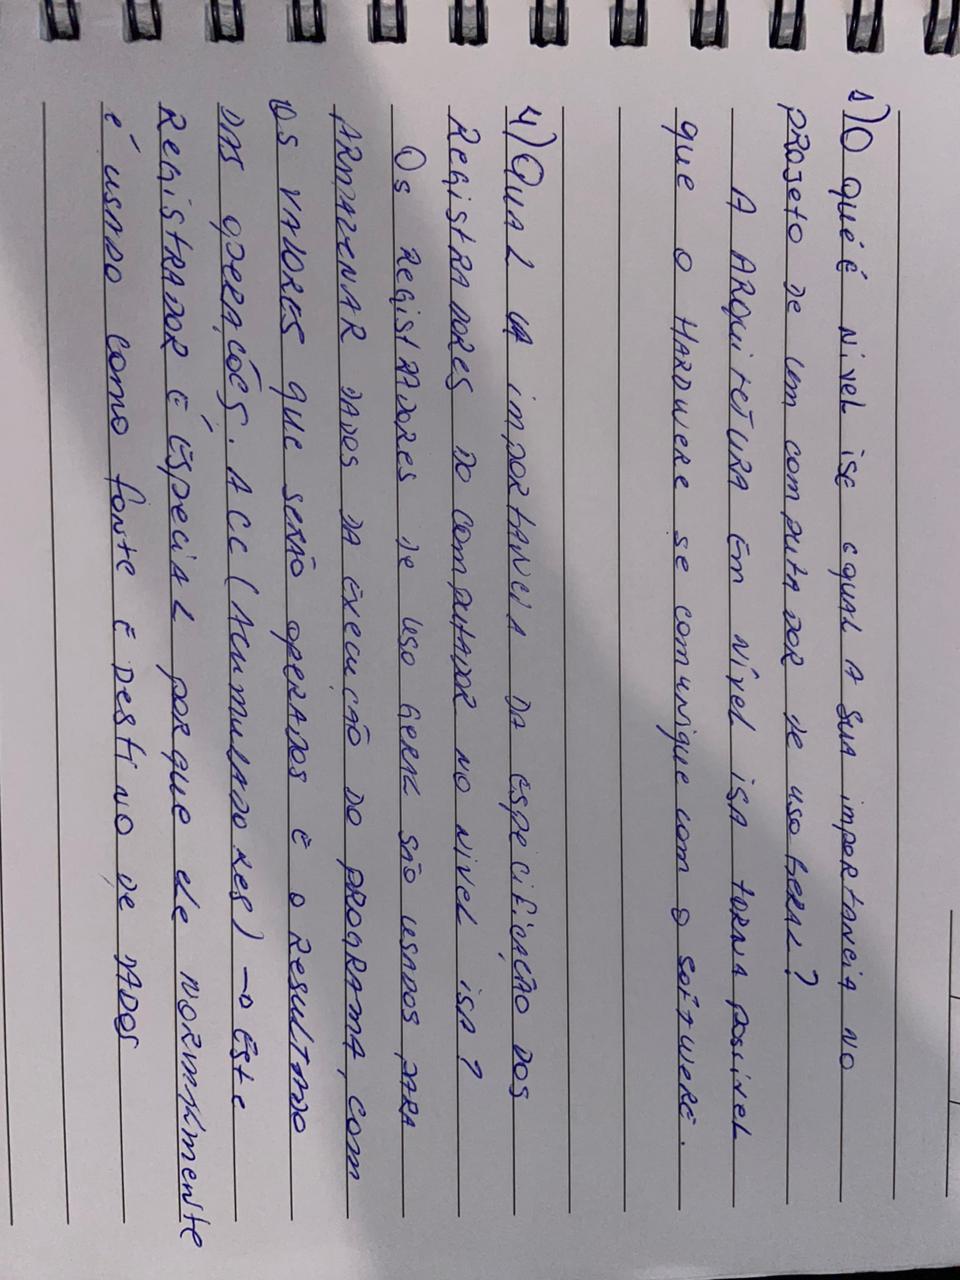 1) O qué é nivel ise equal A sua importancia no
projeto de um computador de uso geral?
A ARQuitetura em nível isA torna possivel
que o Harduere se comunique com o softuere.
4) Qual a importancia da especificação dos
Registradores do computador no nivel isA?
Os Registradores de uso geral são usados para
Armazenar dados da execução do programa, com
os valores que serão operados e o Resultado
das operações. ACC (Acumuladores) → Este
Registrador é especial porque ele normalmente
é usado como fonte e destino de dados